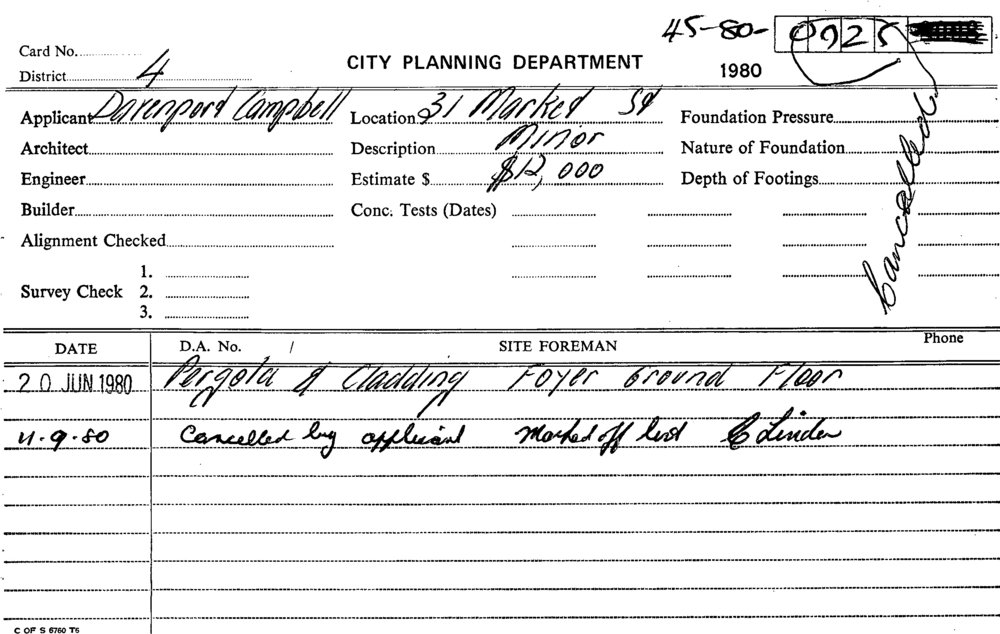 45-80- 0925
Card No.
District 4
CITY PLANNING DEPARTMENT
1980
Applicant Davenport Campbell
Location 31 Market St
Foundation Pressure
Architect
Description Minor
Nature of Foundation
Engineer
Estimate $ $12,000
Depth of Footings
Builder
Conc. Tests (Dates)
Cancelled
Alignment Checked
Survey Check 1.
2.
3.
DATE D.A. No. / SITE FOREMAN Phone
20 JUN 1980 Pergola & Cladding Foyer Ground Floor
11.9.80 Cancelled by applicant Marked off list C Linden
C OF S 6760 T5